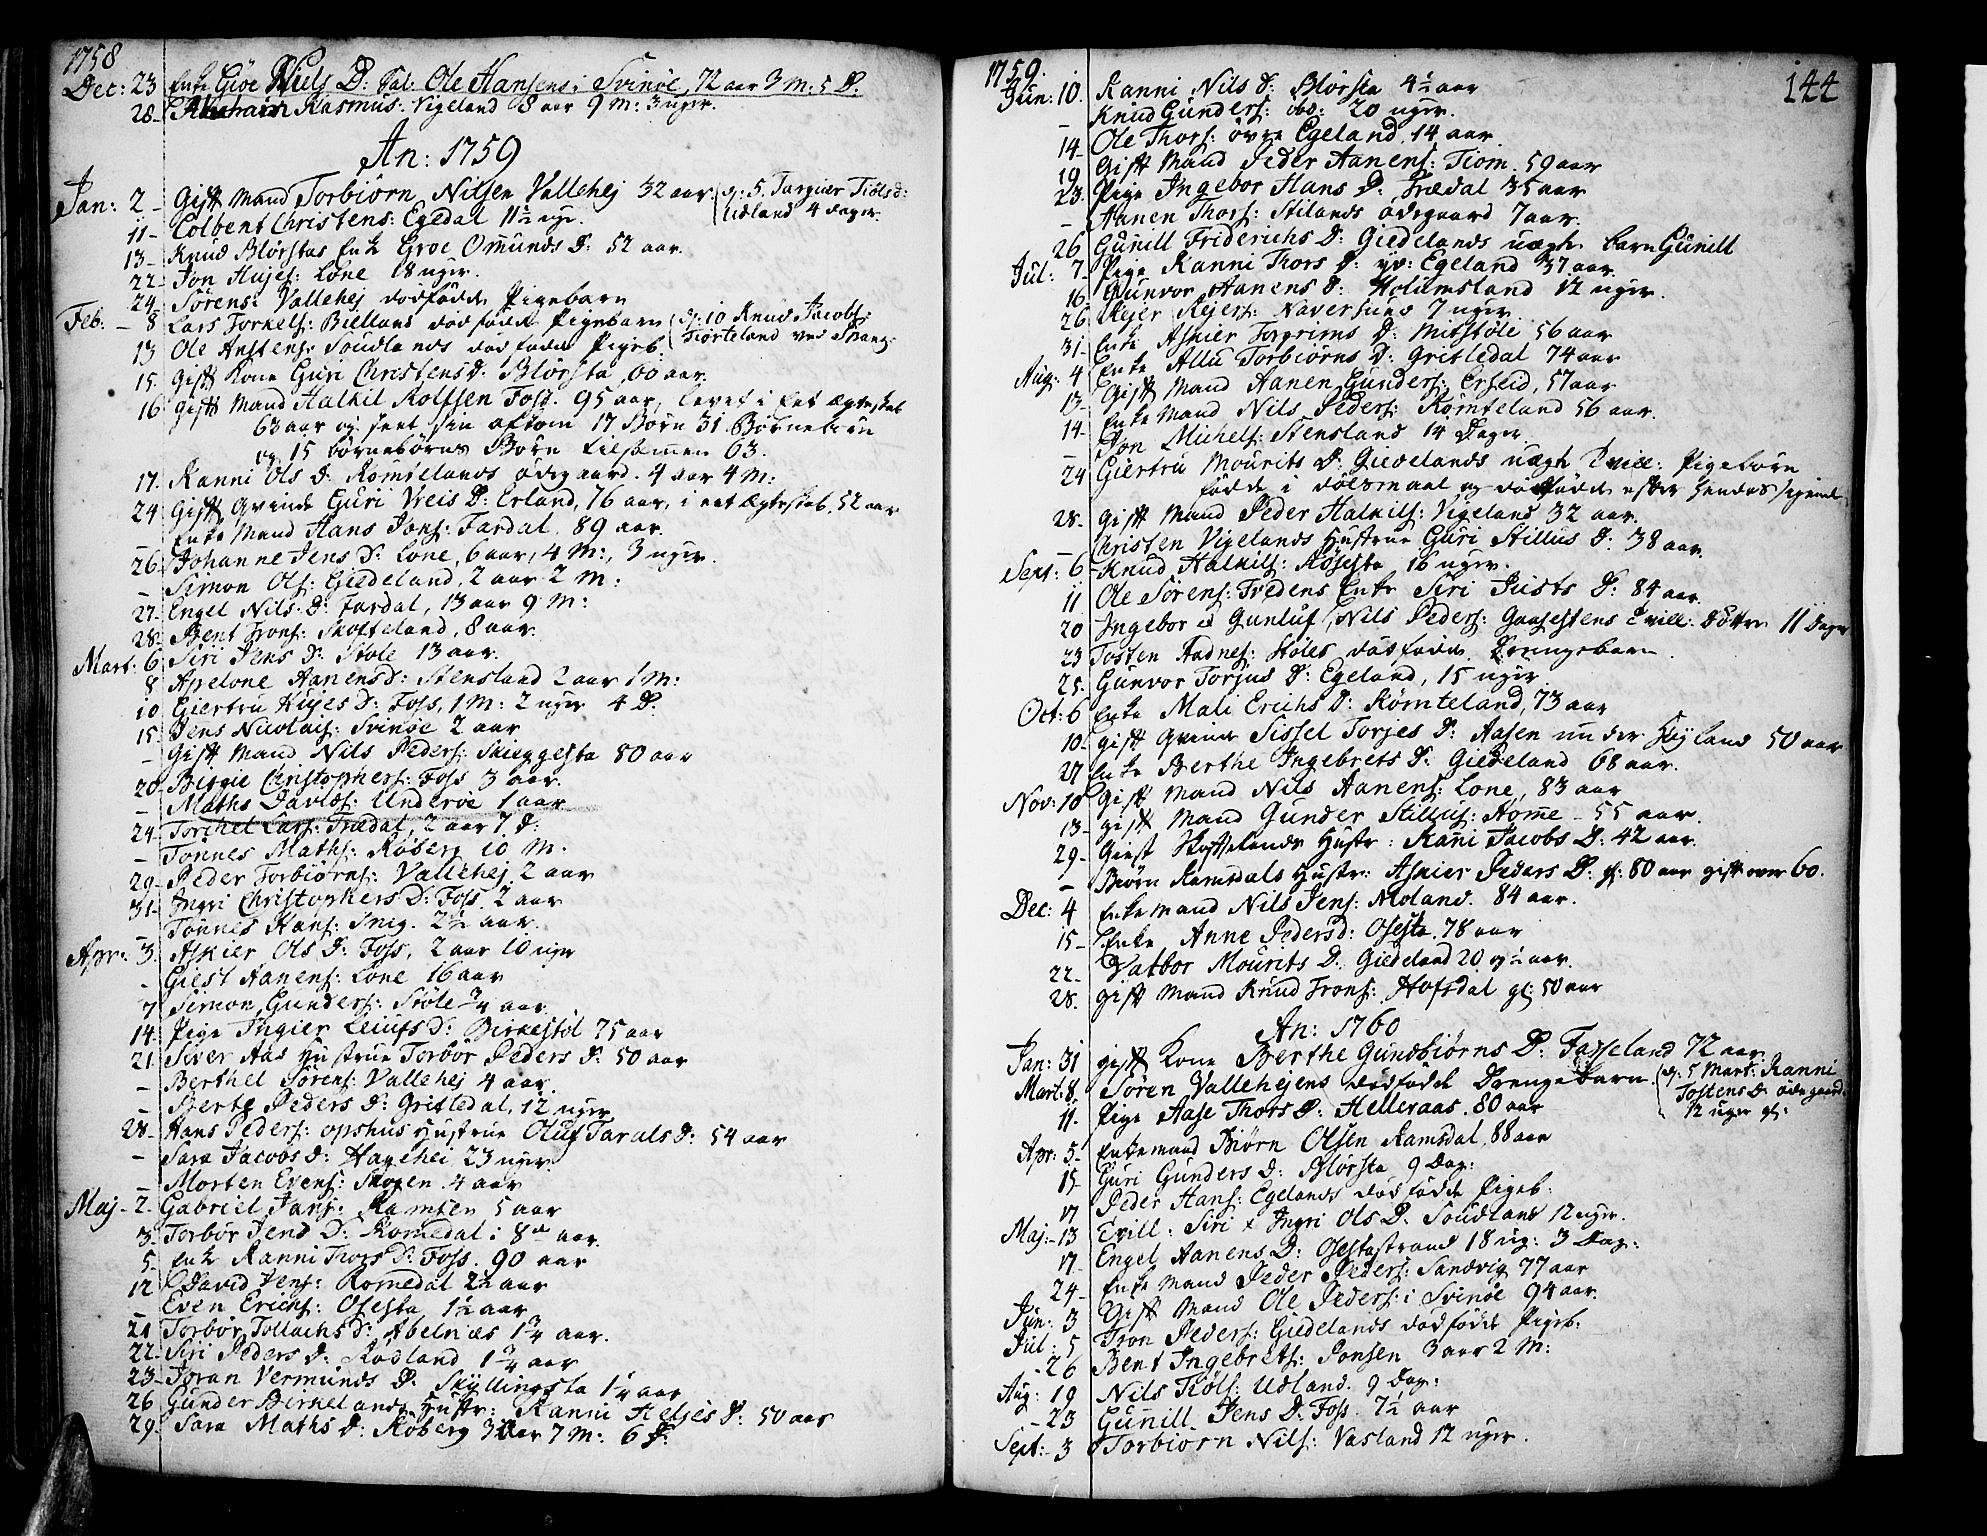 1758
Dec: 23 Enke Gioe Niels D: Sal. Ole Hansens i Svinøe, 72 aar 3 M: 5 D.
28- Abraham Rasmus: Vigeland 8 aar 9 M: 3 uger.
An: 1759
Jan: 2 - Gift Mand Torbiørn Nilsen Vallehej 32 aar. (d: 5. Targier Tiøls d:
Udland 4 dager
11- Colbent Christens: Egedal 11½ uge.
13- Knud Blørstas Enk Groe Omunds D: 52 aar.
22- Jon Hujes: Lone 18 uger.
24- Sørens: Vallehej dødfødde Pigebarn
Feb: - 8 Lars Torkels: Bielland dødfødde Pigebarn (d: 10 Knud Jacobs:
Hiorteland ved Spang:
13 Ole Anstens: Soudlands dødfødde Pigeb.
15. Gift Kone Guri Christens D: Blørsta, 60 aar.
16. gift Mand Halkil Rolfsen Foss. 95 aar, levet i Eet Ægteskab
63 aar og seet sin afkom 17 Børn 31 Børnebørn
og 15 børnebørns Børn tilsammen 63.
17. Ranni Ols D: Romtelands ødegaard. 4 aar 4 M:
24 Gift Qvinde Guri Vreis D: Erland, 76 aar, i eet Ægteskab, 52 aar
- Enke Mand Hans Jons: Fardal. 89 aar.
26 Johanne Jens D: Lone, 6 aar, 4 M:, 3 uger.
- Simon Ols: Giedeland, 2 aar 2 M:
27. Engel Nils D: Fardal, 13 aar 9 M:
28. Bent Trons: Skofteland, 8 aar.
Mart: 6 Siri Jens D: Støle 13 aar.
8 Apelone Aanens D: Stensland 2 aar 1 M:
10 Giertru Hujes D: Foss, 1 M: 2 uger 4 D.
15 Jens Nicolais: Svinøe 2 aar
- Gift Mand Nils Peders: Skieggesta 80 aar
20 Birgie Christophers: Foss 3 aar.
- Maths Davids: Underøe 1 aar
24 Torchel Lars: Trædal, 2 aar 7 D:
- Tønnes Maths: Røberg 10 M.
29- Peder Torbiørns: Vallehej 2 aar
31- Ingri Christophers D: Foss 2 aar
- Tønnes Hans: Snig. 2½ aar.
Apr: 3. Askier Ols D: Foss, 2 aar 10 uger
- Giest Aanens: Lone 16 aar
7 Simon Gunders: Støle ¾ aar
14 Pige Ingier Leiufs D: Birkestøl 75 aar
21 Siver Aas Hustrue Torbør Peders D: 50 aar
- Berthel Sørens: Vallehej 4 aar.
- Berte Peders D: Gritledal, 12 uger
28- Hans Peders: opshus Hustrue Oluf Taralds D: 54 aar
- Sara Jacobs D: Hagehei 23 uger
- Morten Evens: Skogen. 4 aar
Maj - 2 Gabriel Jans: Ramten 5 aar
3 Torbør Jens D: Romedal: 8 aar.
5- Enk Ranni Thors D: Foss. 90 aar
12 David Jens: Romedal 2½ aar
- Even Erichs: Osesta 1½ aar
21 Torbør Tollachs D: Abelnæs 1¾ aar.
22- Siri Peders D: Rødland 1¾ aar
23- Joran Vermunds D: Skyllingsta 1¼ aar
26 Gunder Birkelands Hustr: Ranni Heljes D: 50 aar
29. Sara Maths D: Røberg 3 aar 7 M: 6 D:
144
1759.
Jun: 10. Ranni Nils D: Blørsta 4½ aar
- Knud Gunders: ibd: 20 uger.
14- Ole Thors: øvre Egeland, 14 aar
19 Gift Mand Peder Aanens: Tiom. 59 aar
23. Pige Ingebor Hans D: Trædal 35 aar
- Aanen Thors: Stilands ødegaard 7 aar.
26 Gunill Friderichs D: Giedelands uægte barn Gunill
Jul: 7- Pige Ranni Thors D: yv: Egeland 37 aar.
16 Gunvor Aanens D: Holumsland 12 uger.
26 Rejer Rejers: Naversund 7 uger
31- Enke Askier Torgrims D: Mitstøle 56 aar
Aug: 4 Enke Allu Torbiørns D: Gritledal 74 aar
13- Gift Mand Aanen Gunders: Erseid, 57 aar
14- Enke Mand Nils Peders: Rømteland 56 aar.
- Jon Michels: Stensland 14 Dager
24 Giertru Mourits D: Giedelands uægte Tvill: Pigebørn
fødde i dølsmaal og dødfødde efter hendes sigende
28- gift Mand Peder Halkils: Vigeland 32 aar.
- Christen Vigelands Hustrue Guri Stillus D: 38 aar
Sept: 6 Knud Halkils: Røsesta 16 uger.
11 Ole Sørens: Tredens Enke Siri Justs D: 84 aar
20 Ingebor et Gunluf, Nils Peders: Gaasestens Tvill: Døttre 11 Dager
23 Tosten Aadnes: Støles dødfødde Drengebarn.
25. Gunvor Torjus D: Egeland, 15 uger
Oct: 6 Enke Mali Erichs D: Rømteland, 73 aar
10. gift Qvinde Sissel Torjes D: Aasen under Høyland 50 aar
27 Enke Berthe Ingebrets D: Giedeland 68 aar.
Nov: 10 gift Mand Nils Aanens: Lone, 83 aar
13- gift Mand Gunder Stillus: Home - 55 aar.
29- Giest Skoftelands Hustr: Rani Jacobs D: 42 aar.
- Biørn Ramsdals Hustr: Askier Peders D: gl: 80 aar gift over 60.
Dec: 4 Enkemand Nils Jens: Moland. 84 aar.
15- Enke Anne Peders D: Osesta. 78 aar
22- Valbor Mourits D: Giedeland 20 og ½ aar.
28. gift Mand Knud Trons: Hofsdal gl: 50 aar
An: 1760
Jan: 31 gift Kone Berthe Gundbiørns D: Fasseland 72 aar.
Mart: 8. Søren Vallehejens dødfødde Drengebarn (d: 5 Mart: Ranni
Tostens D ødegaard
12 uger gl:
11. Pige Aase Thors D: Helleraas. 80 aar
Apr: 5- Enkemand Biørn Olsen Ramsdal, 88 aar
15 Guri Gunders D: Blørsta 9 Dag:
17 Peder Hans: Egelands dødfødde Pigeb:
Maj: - 13 Tvill: Siri & Ingri Ols D: Soudland 12 uger.
17. Engel Aanens D: Osestastrand 18 ug: 3 Dag:
24- Enke Mand Peder Peders: Sandvig 77 aar
Jun: 3 Gift Mand Ole Peders: i Svinøe 94 aar.
Jul: 5 Tron Peders: Giedelands dødfødde Pigeb:
- 26 Bent Ingebrets: Ponsen 3 aar 2 M:
Aug: 19 Nils Tiøls: Udland. 9 Dag:
- 23 Gunill Jens D: Foss. 7½ aar
Sept: - 3 Torbiørn Nils: Vasland 12 uger.